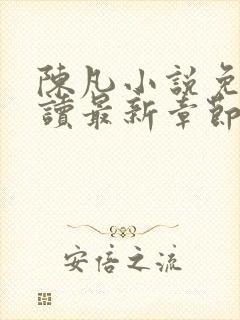 陳凡小說免
讀最新章節
安倍之流